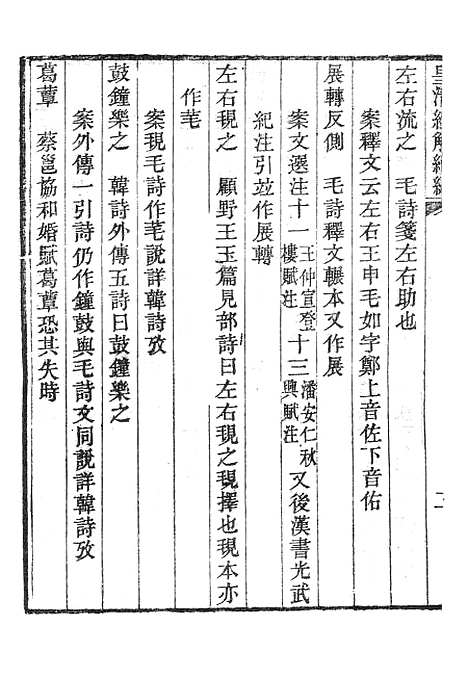 皇清經解續編
左右流之　毛詩箋左右助也
案釋文云左右王申毛如字鄭上音佐下音佑
展轉反側　毛詩釋文輾本又作展
案文選注十一王仲宣登樓賦注十三潘安仁秋興賦注又後漢書光武
紀注引竝作展轉
左右覒之　顧野王玉篇見部詩曰左右覒之覒擇也覒本亦
作芼
案覒毛詩作芼說詳韓詩攷
鼓鐘樂之　韓詩外傳五詩曰鼓鐘樂之
案外傳一引詩仍作鐘鼓與毛詩文同說詳韓詩攷
葛蕈　蔡邕協和婚賦葛蕈恐其失時